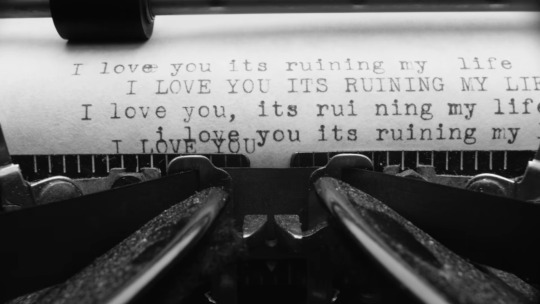 I love you its ruining my life
I LOVE YOU ITS RUINING MY
I love you, its rui ning my life
i love you its ruining my
I LOVE YOU